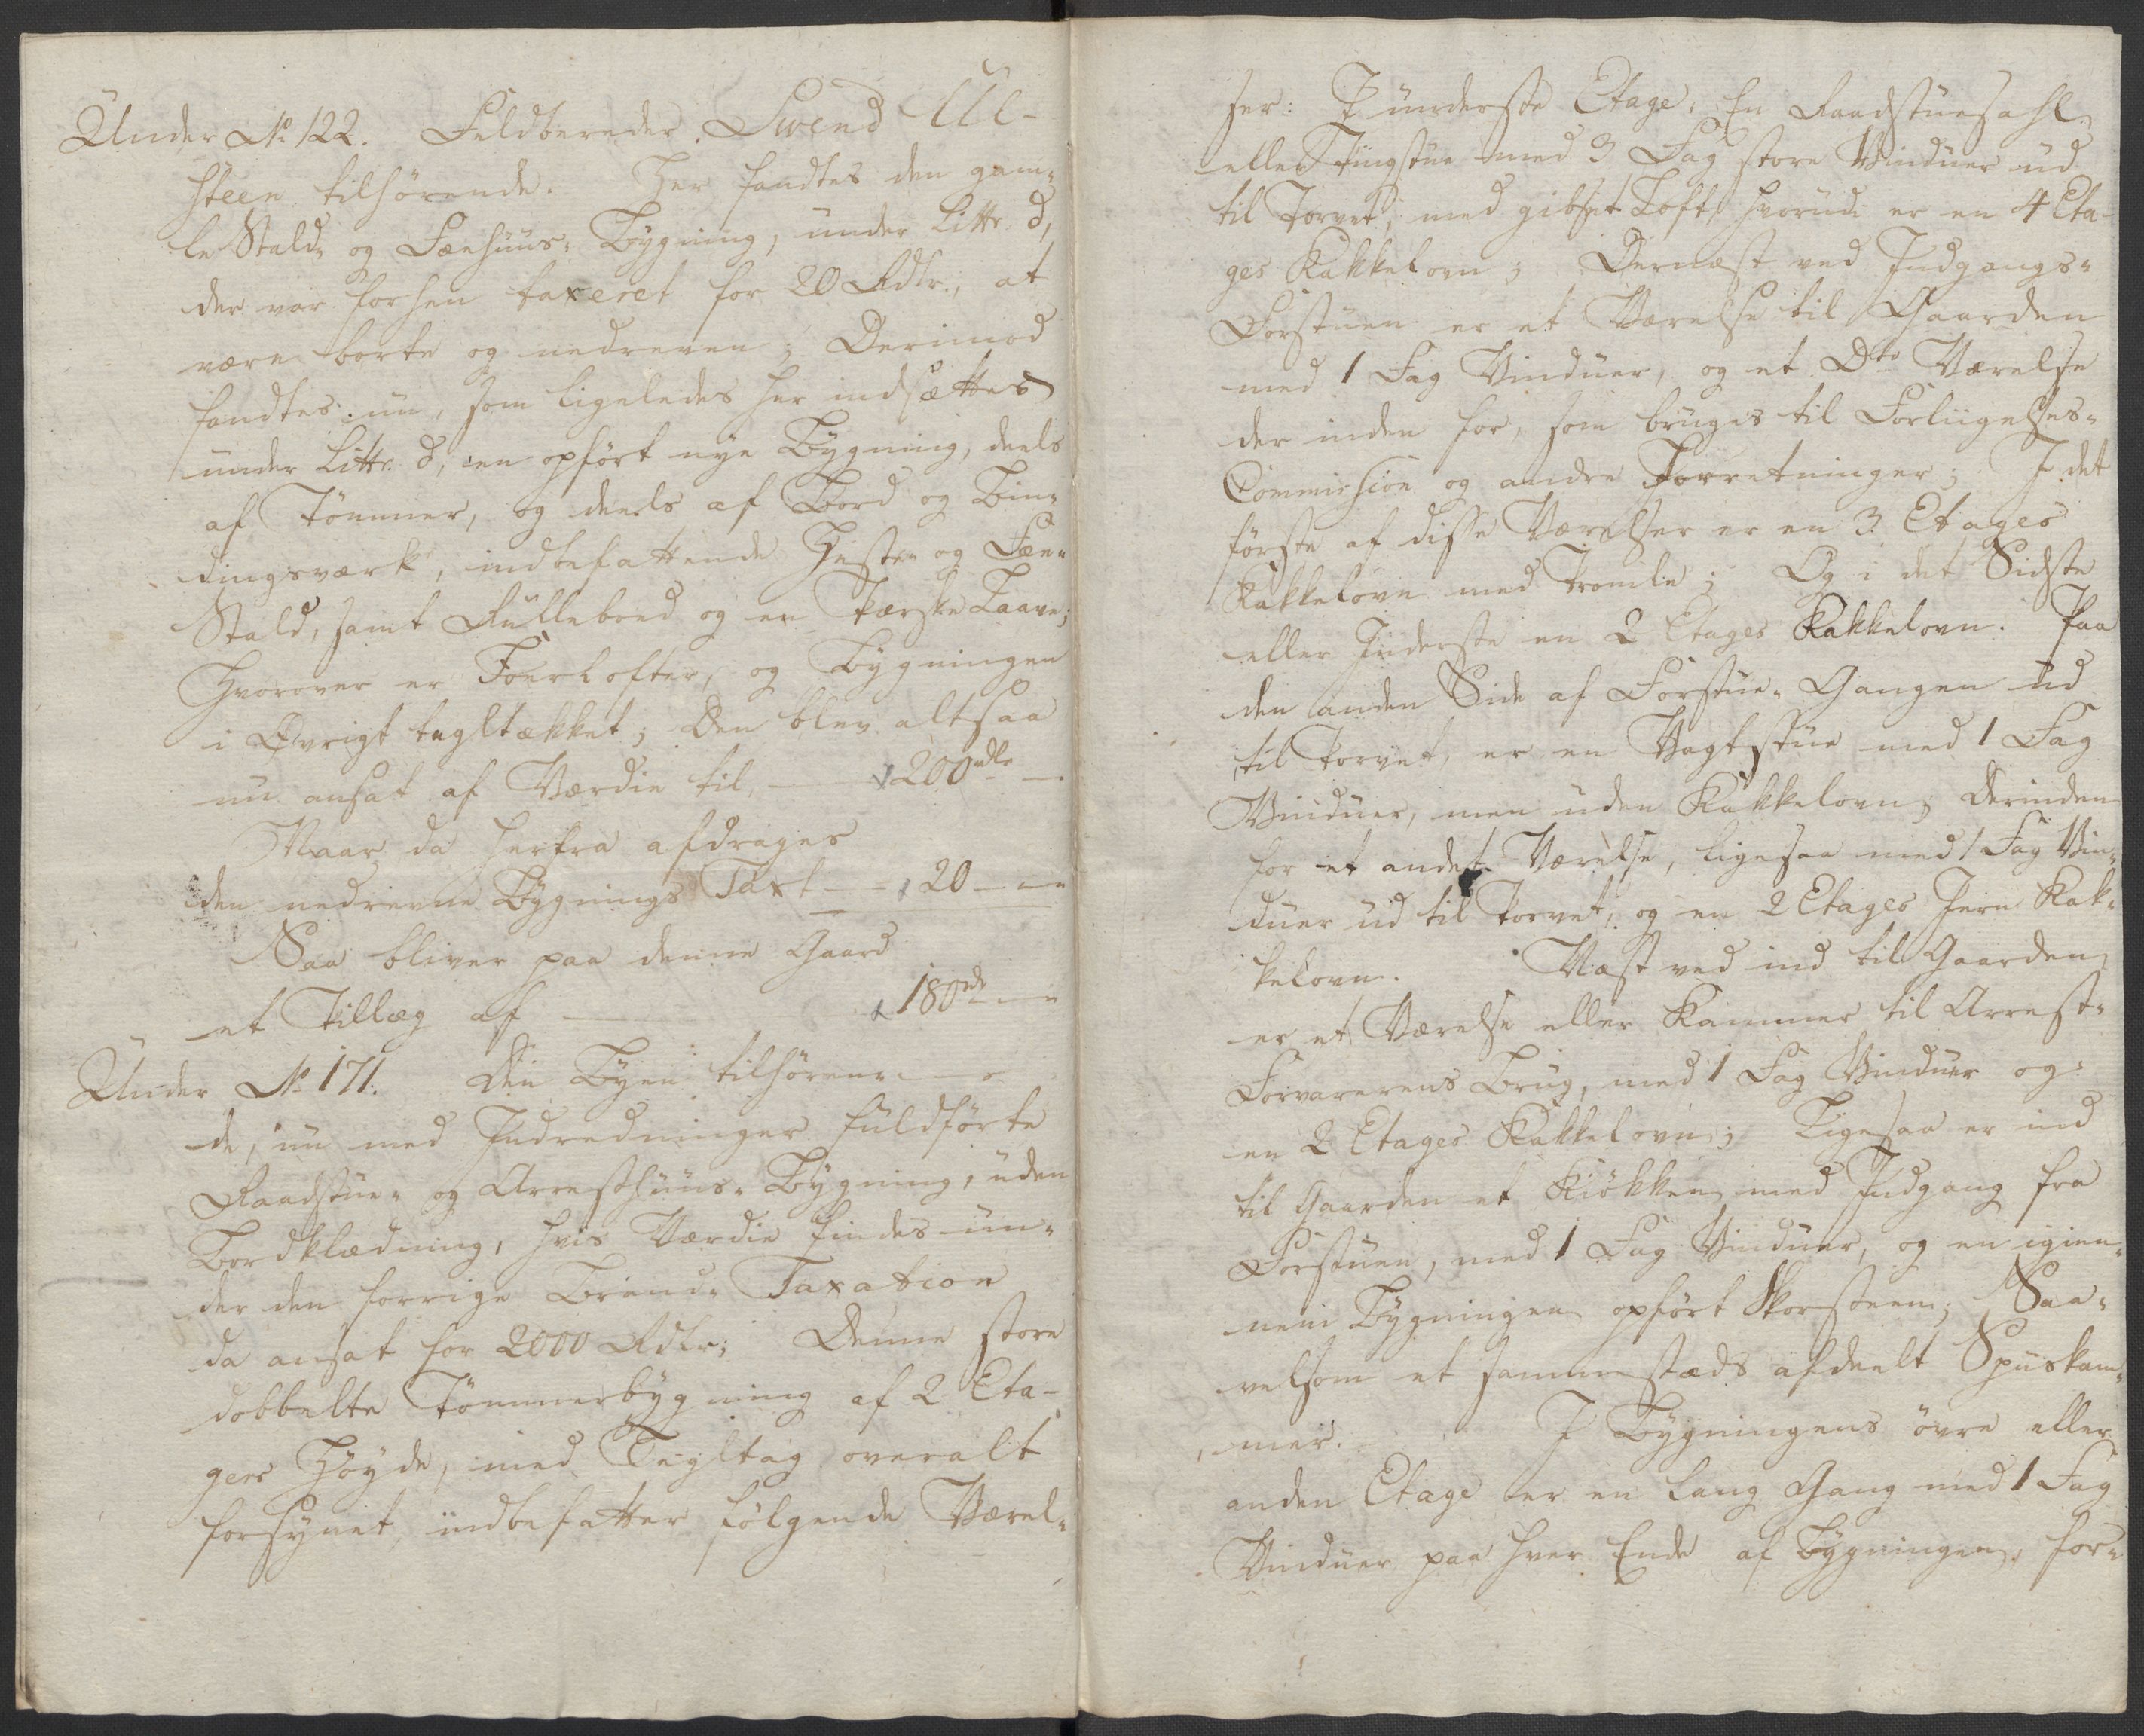 Under No 122. Feldbereder Svend Ul-
steen tilhørende. Her fandtes den gam-
le Stald- og Fæehuus-Bygning, under Littr. d,
der var forhen taxeret for 20 Rdlr., at
være borte og nedreven; Derimod
fandtes nu, som ligeledes her indsættes
under Littr. d, een opført nye Bygning, deels
af Tømmer, og deels af Bord og Bin-
dingsværk, indbefattende Heste- og Fæe-
Stald, samt Rullebord og en Tærske Laave;
Hvorover er Foerlofter, og Bygningen
i Øvrigt tagltækket; Den blev altsaa
nu ansat af Værdie til — 200 rdlr —
Naar da herfra afdrages
den nedrevne Bygnings Taxt — 20 —
Saa bliver paa denne Gaard
et Tillæg af — 180 rd —
Under No 171. Den Byen tilhøren-
de, nu med Indredninger fuldførte
Raadstue- og Arresthuus-Bygning, uden
Bordklædning, hvis Værdie findes un-
der den forrige Brand-Taxation
da ansat for 2000 Rdlr; Denne store
dobbelte Tømmerbygning af 2 Eta-
gers Høyde, med Tegltag overalt
forsynet, indbefatter følgende Værel-
ser: I underste Etage: En Raadstuesahl
eller Tingstue med 3 Fag store Vinduer ud
til Torvet, med gibset Loft, hvorudi er en 4 Eta-
ges Kakkelovn; Dernæst ved Indgangs-
Forstuen er et Værelse til Gaarden
med 1 Fag Vinduer, og et Dto Værelse
der inden for, som bruges til Forliigelses-
Commission og andre Forretninger; I det
første af disse Værelser er en 3 Etages
Kakkelovn med Tromle; Og i det Sidste
eller Inderste en 2 Etages Kakkelovn. Paa
den anden Side af Forstue-Gangen ud
til Torvet, er en Vagtstue med 1 Fag
Vinduer, men uden Kakkelovn; Derinden
for et andet Værelse, ligesaa med 1 Fag Vin-
duer ud til Torvet, og en 2 Etages Jern Kak-
kelovn. Næst ved ind til Gaarden
er et Værelse eller Kammer til Arrest-
Forvarerens Brug, med 1 Fag Vinduer og
en 2 Etages Kakkelovn; Ligesaa er ind
til Gaarden et Kiøkken med Indgang fra
Forstuen, med 1 Fag Vinduer, og en igien-
nem Bygningen opført Skorsteen; Saa-
velsom et sammestæds afdeelt Spiiskam-
mer. I Bygningens øvre eller
anden Etage er en lang Gang med 1 Fag
Vinduer paa hver Ende af Bygningen, for-